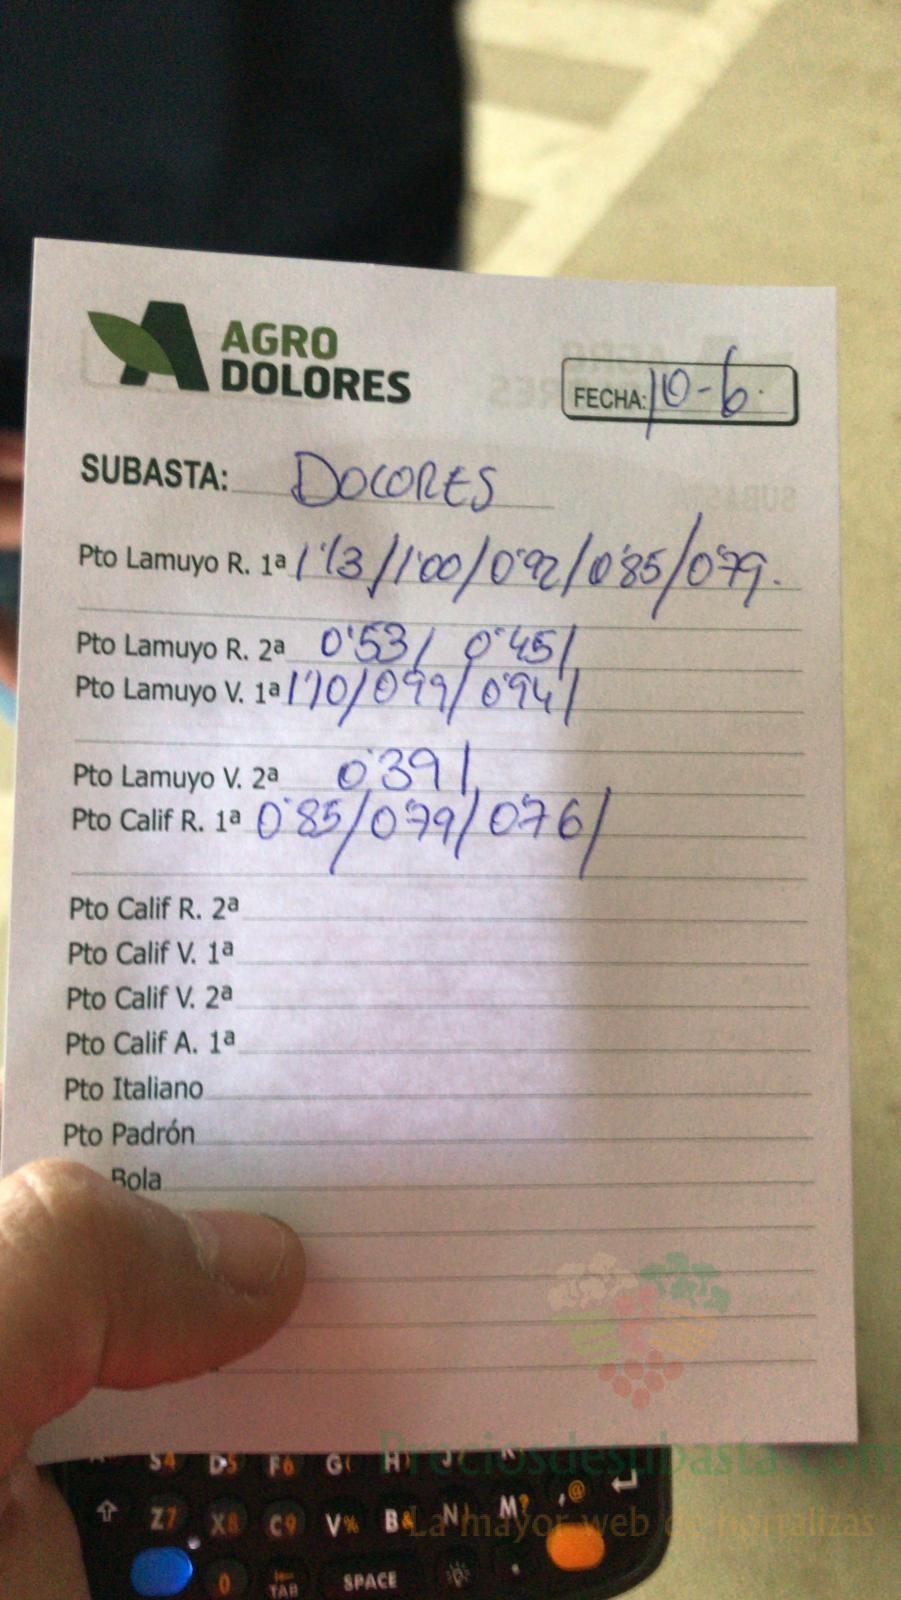 AGRO
DOLORES
FECHA: 10-6.
SUBASTA: DOLORES
Pto Lamuyo R. 1ª 1'13/1'00/0'92/0'85/0'79.
Pto Lamuyo R. 2ª 0'53/ 0'45/
Pto Lamuyo V. 1ª 1'10/0'99/0'94/
Pto Lamuyo V. 2ª 0'39/
Pto Calif R. 1ª 0'85/0'79/0'76/
Pto Calif R. 2ª
Pto Calif V. 1ª
Pto Calif V. 2ª
Pto Calif A. 1ª
Pto Italiano
Pto Padrón
Bola
Preciosdesubasta.com
La mayor web de hortalizas
S4 D5 F6 G( H) J
Z7 X8 C9 V% B& N! M? ,@
0 TAB SPACE .